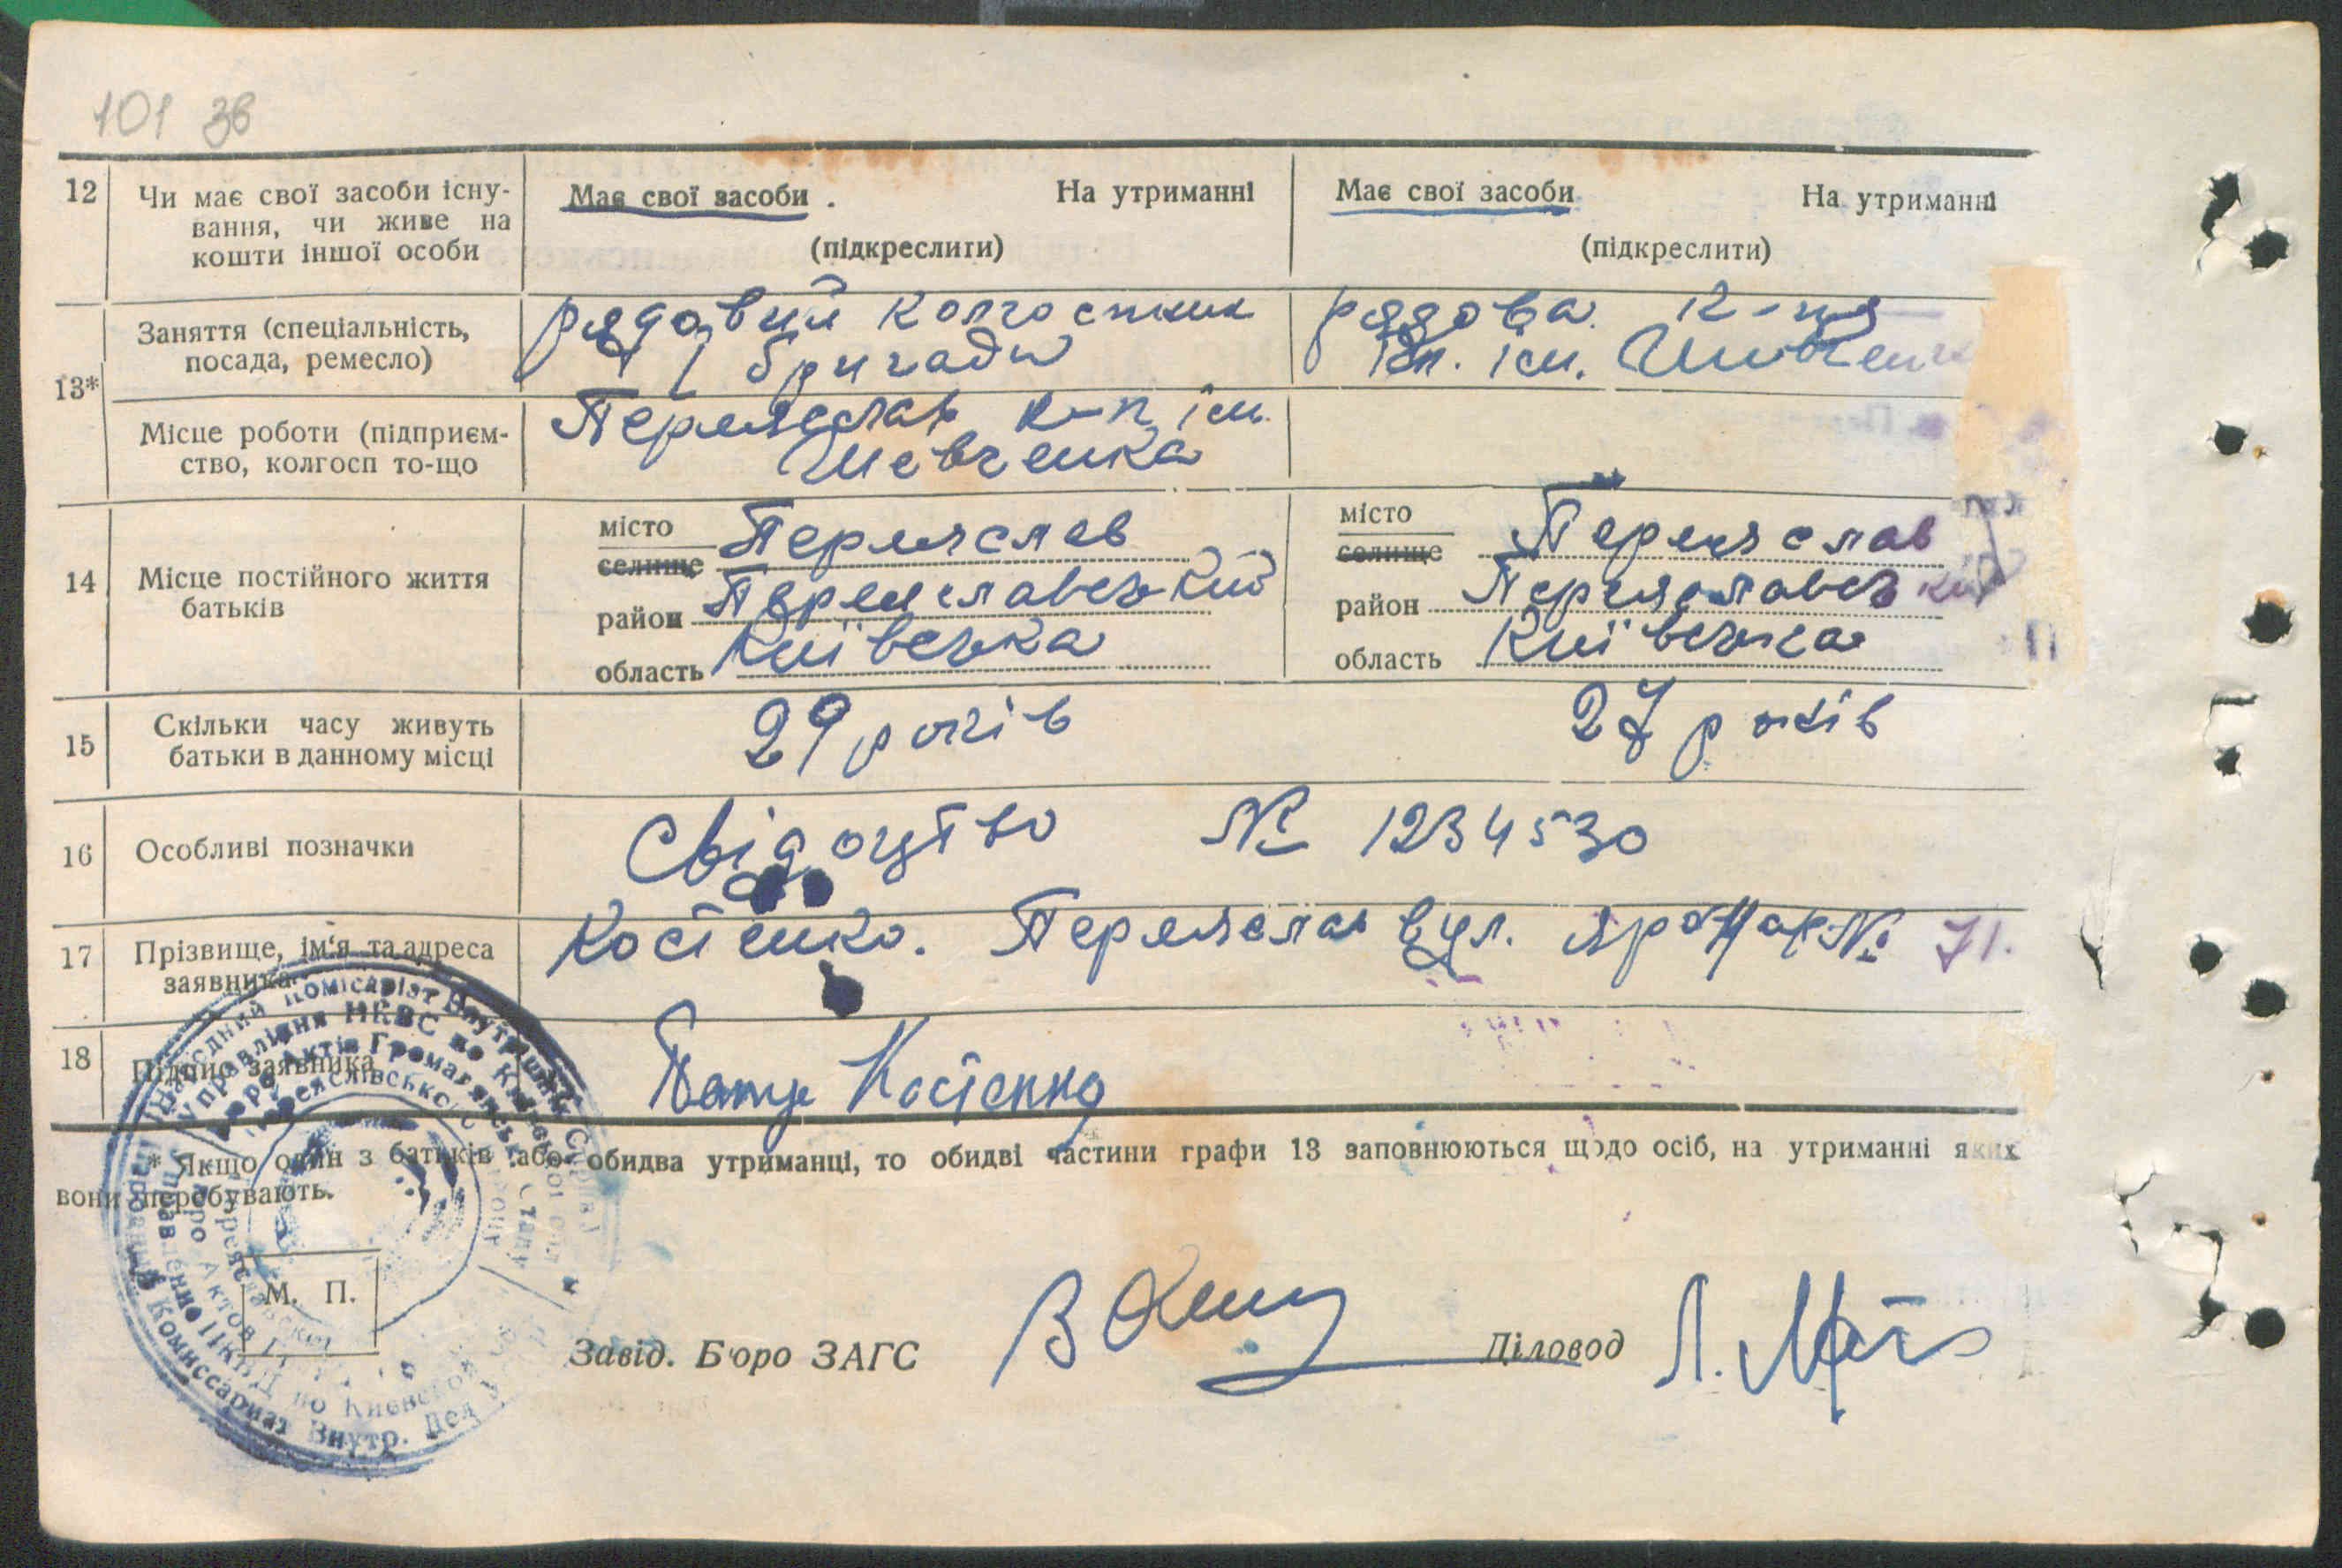 101 зв
12 Чи має свої засоби існу-
вання, чи живе на
кошти іншої особи
Має свої засоби . На утриманні
(підкреслити)
Має свої засоби На утриманні
(підкреслити)
13*
Заняття (спеціальність,
посада, ремесло)
рядовий колгоспник
1 бригади
рядова к-ця
ім. Шевченк
Місце роботи (підприєм-
ство, колгосп то-що
Переяслав к-п ім.
Шевченка
14 Місце постійного життя
батьків
місто Переяслав
селище
район Переяславський
область Київська
місто Переяслав
селище
район Переяславський
область Київська
15 Скільки часу живуть
батьки в данному місці
29 років
27 років
16 Особливі позначки
Свідоцтво № 1234530
17 Прізвище, ім'я та адреса
заявника
Костенко. Переяслав вул. № 71.
18 Підпис заявника
Костенко
* Якщо один з батьків або обидва утриманці, то обидві частини графи 13 заповнюються щодо осіб, на утриманні яких
вони перебувають.
М. П.
Завід. Бюро ЗАГС
Діловод
Народний Комісаріят Внутрішніх Справ
Управління НКВС по Київській
Бюро Актів Громадянськ Стану
Комиссариат Внутр. Дел